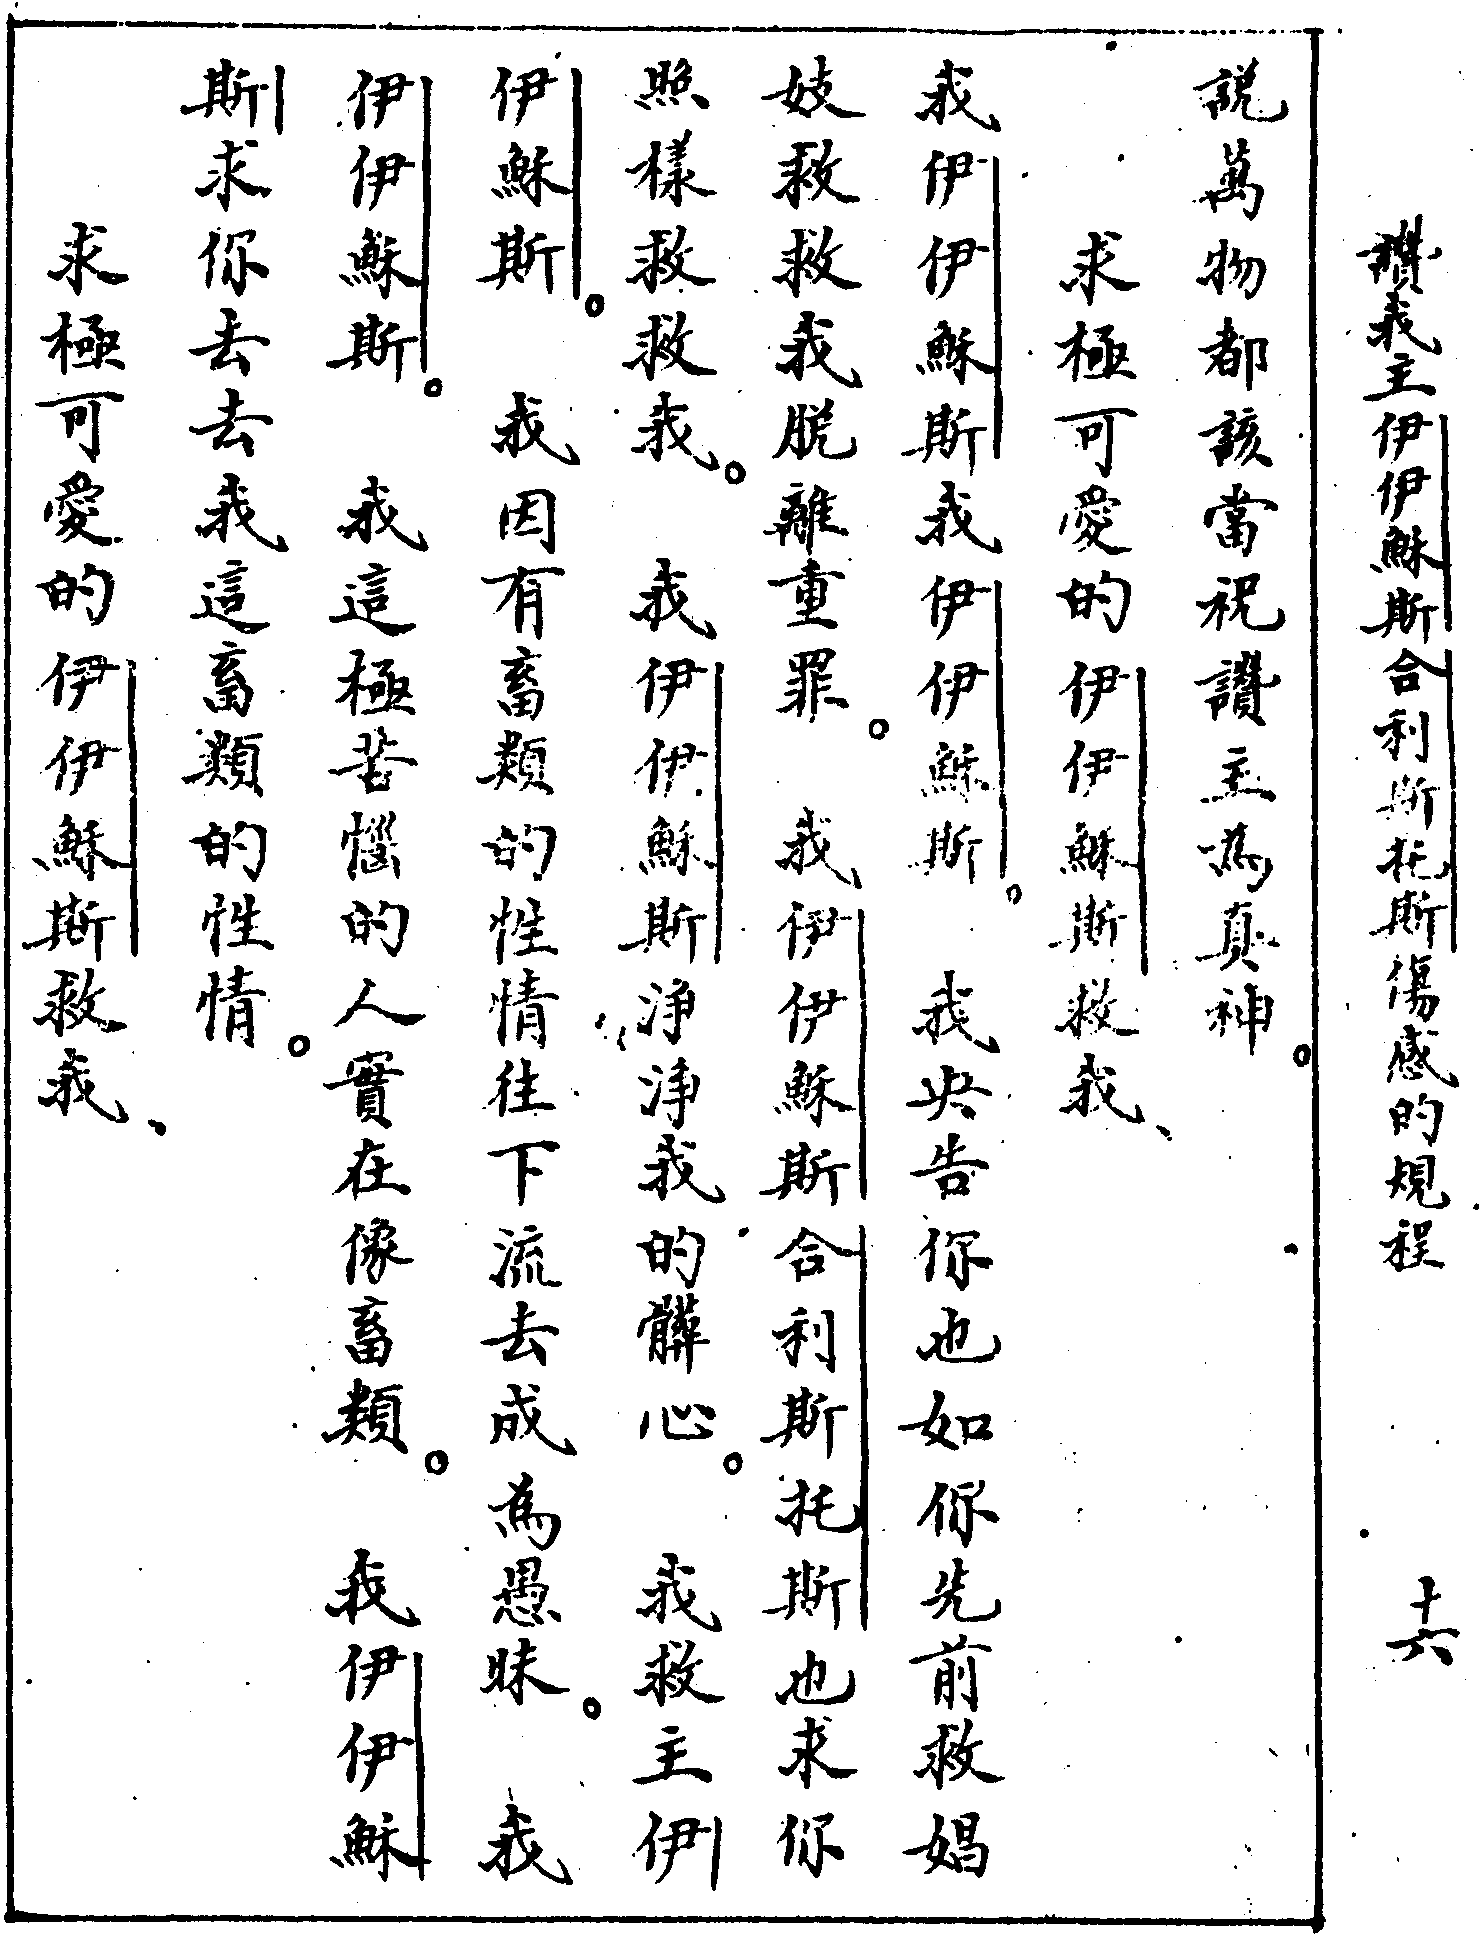 讚我主伊伊穌斯合利斯托斯傷感的規程 十六
說萬物都該當祝讚主為真神。
求極可愛的伊伊穌斯救我、
我伊伊穌斯我伊伊穌斯。 我央告你也如你先前救娼
妓救救我脫離重罪。 我伊伊穌斯合利斯托斯也求你
照樣救救我。 我伊伊穌斯淨淨我的髒心。 我救主伊
伊穌斯。 我因有畜類的性情往下流去成為愚昧。 我
伊伊穌斯。 我這極苦惱的人實在像畜類。 我伊伊穌
斯求你去去我這畜類的性情。
求極可愛的伊伊穌斯救我、